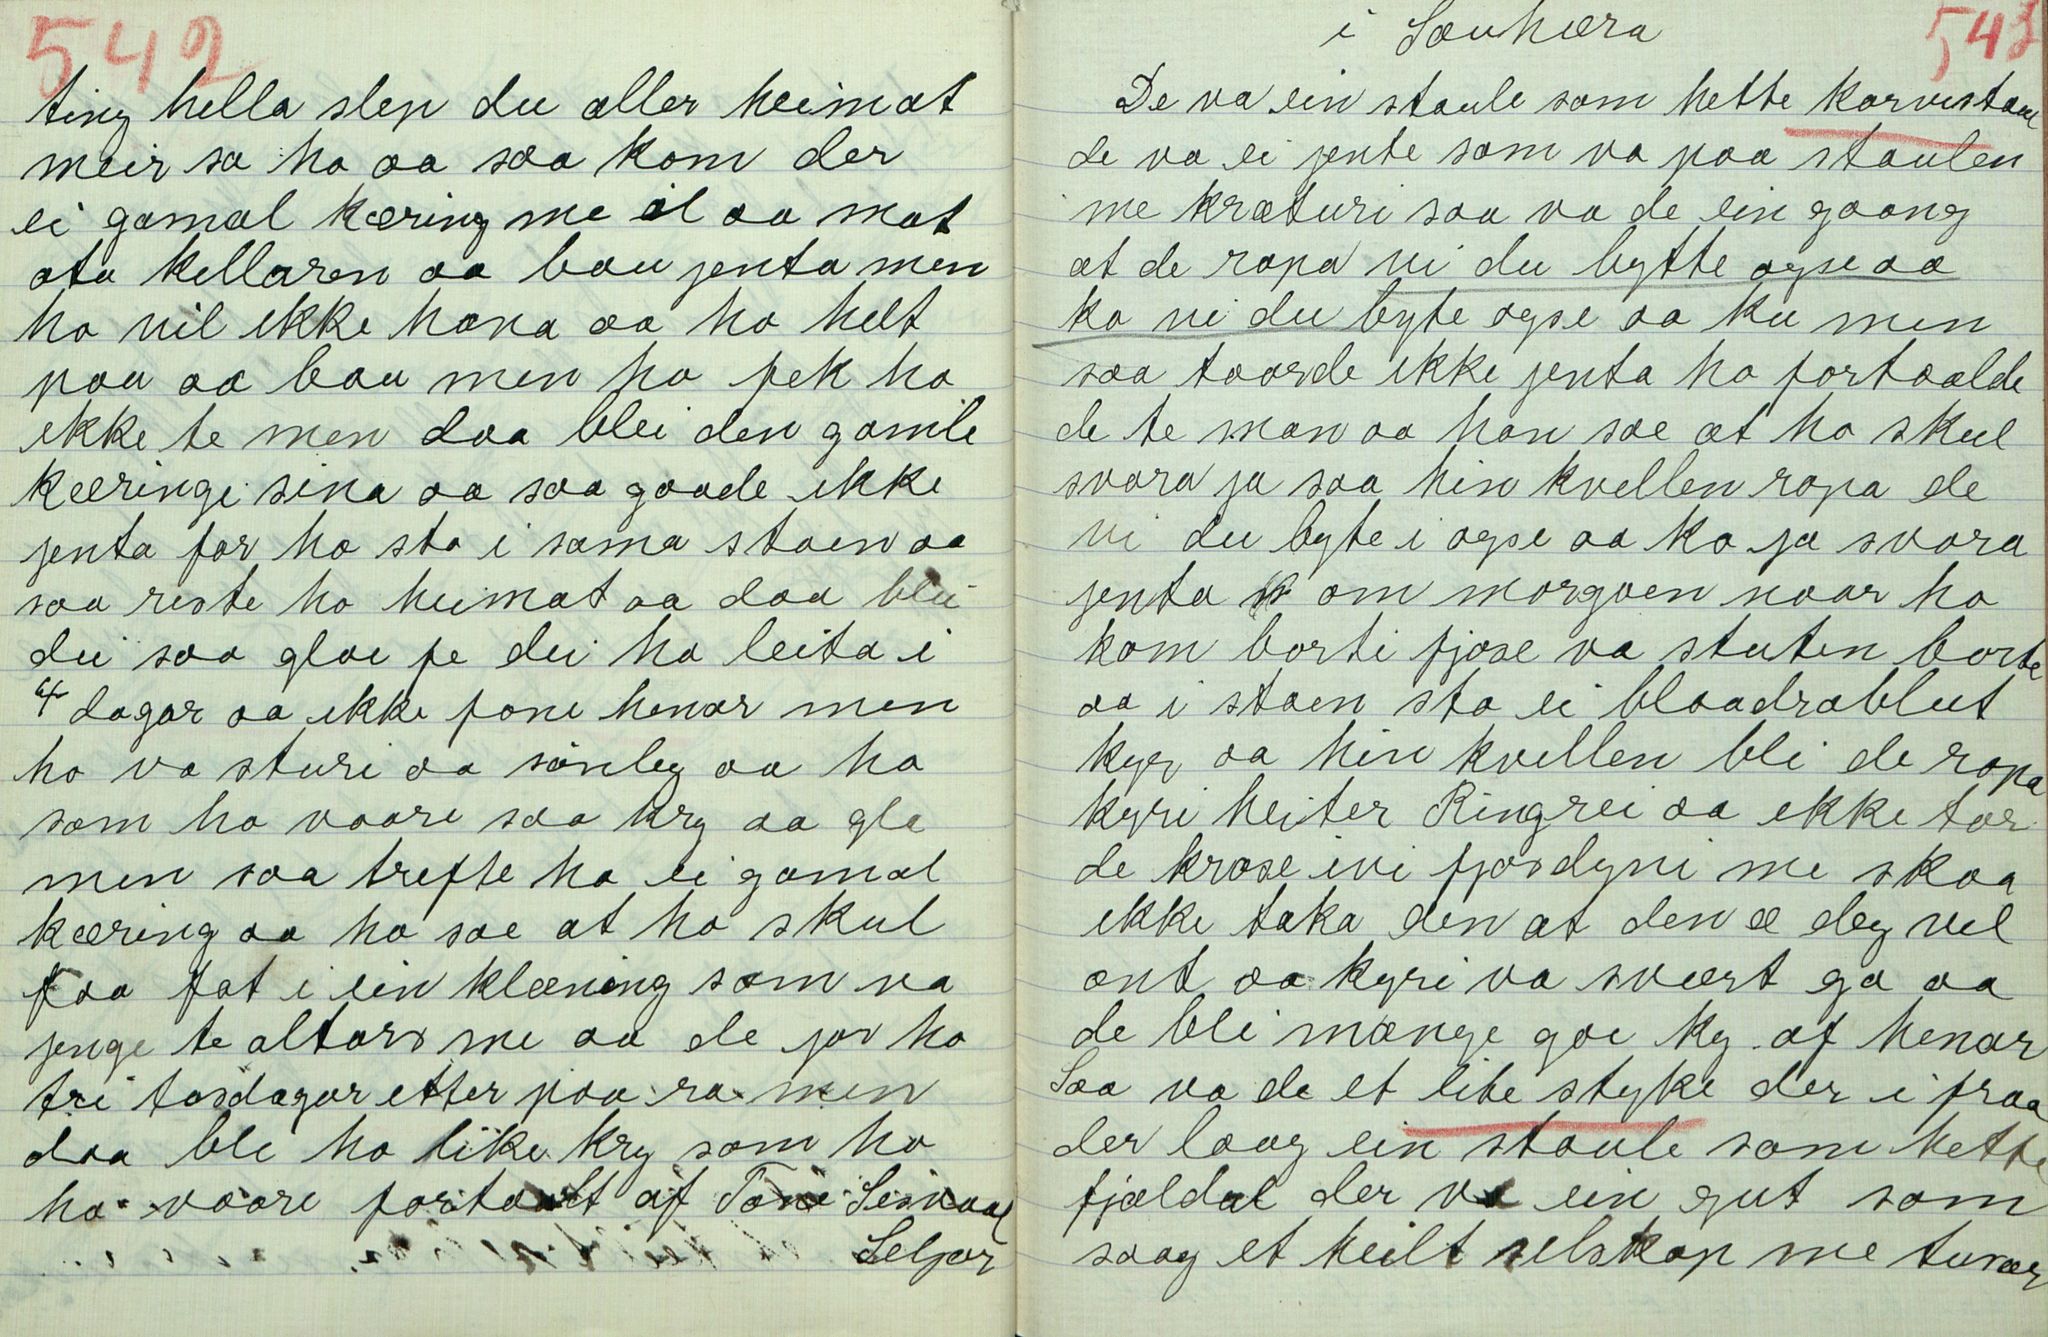 542
ting hella slep du aller heimat
meir sa ho aa saa kom der
ei gamal kæring me øl aa mat
ota kellaren aa bau jenta men
ho vil ikke hava aa ho helt
paa aa bau men ho fek ho
ikke te men daa blei den gamle
kæringi sina aa saa gaade ikke
jenta før ho sto i sama staen aa
saa reiste ho heimat aa daa blei
dei saa glae fe dei ha leita i
4 dagar aa ikke fone henar men
ho va sturi aa sørileg aa ho
som ha vaare saa kry aa gla
men saa trefte ho ei gamal
kæring aa ho sae at ho skul
faa fat i ein klæning som va
jenge te altars me aa de jor ho
tri tosdagar etter paa ra men
daa ble ho like kry som ho
ha vaare fortaalt af Tone
Seljor
543
i Sauhæra
De va ein staule som hette
de va ei jente som va paa staulen
me kræturi saa va de ein gaang
at de ropa vi du bytte ogse aa
ko vi du byte ogse aa ku men
saa toorde ikke jenta ho fortaalde
de te man aa han sae at ho skul
svara ja saa hin kvellen ropa de
vi du byte i ogse aa ko ja svora
jenta om morgaen naar ho
kom borti fjøse va stuten borte
aa i staen sto ei blaadroblut
kyr aa hin kvellen bli de ropa
kyri heiter Ringrei aa ikke tor
de krose ivi fjosdyni me skaa
ikke taka den at den æ deg vel
ont aa kyri va svært go aa
de bli mange goe ky af henar
Saa va de et lite styke der i fraa
der laag ein staule som hette
fjældal der va ein gut som
saag et heilt selskap me tusær